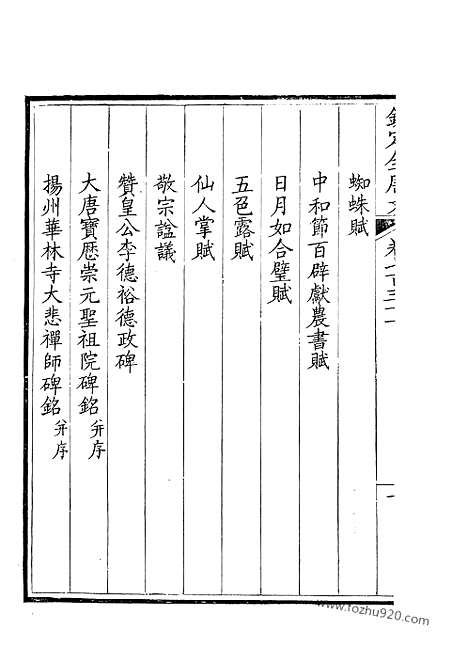 蜘蛛賦
中和節百辟獻農書賦
日月如合璧賦
五色露賦
仙人掌賦
敬宗諡議
贊皇公李德裕德政碑
大唐寶歷崇元聖祖院碑銘 并序
揚州華林寺大悲禪師碑銘 并序
www.fozhu920.com